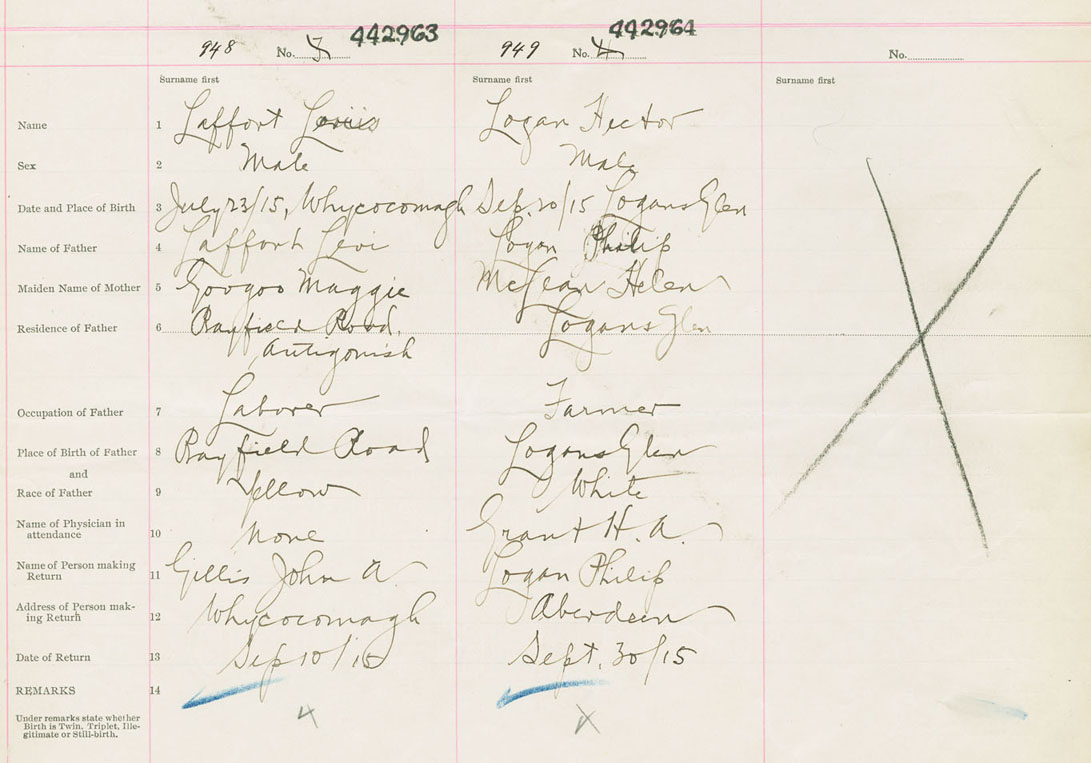 442963 442964
948 No. 3 949 No. 4 No.
Surname first Surname first Surname first
Name 1 Laffort Louis Logan Hector
Sex 2 Male Male
Date and Place of Birth 3 July 23/15, Whycocomagh Sep. 20/15 Logans Glen
Name of Father 4 Laffort Levi Logan Philip
Maiden Name of Mother 5 Googoo Maggie McLean Helen
Residence of Father 6 Bayfield Road, Logans Glen
Antigonish
Occupation of Father 7 Laborer Farmer
Place of Birth of Father 8 Bayfield Road Logans Glen
and
Race of Father 9 Yellow White
Name of Physician in
attendance 10 None Grant H. A.
Name of Person making
Return 11 Gillis John A. Logan Philip
Address of Person mak-
ing Return 12 Whycocomagh Aberdeen
Date of Return 13 Sep 10/15 Sept. 30/15
REMARKS 14
Under remarks state whether
Birth is Twin, Triplet, Ille-
gitimate or Still-birth.